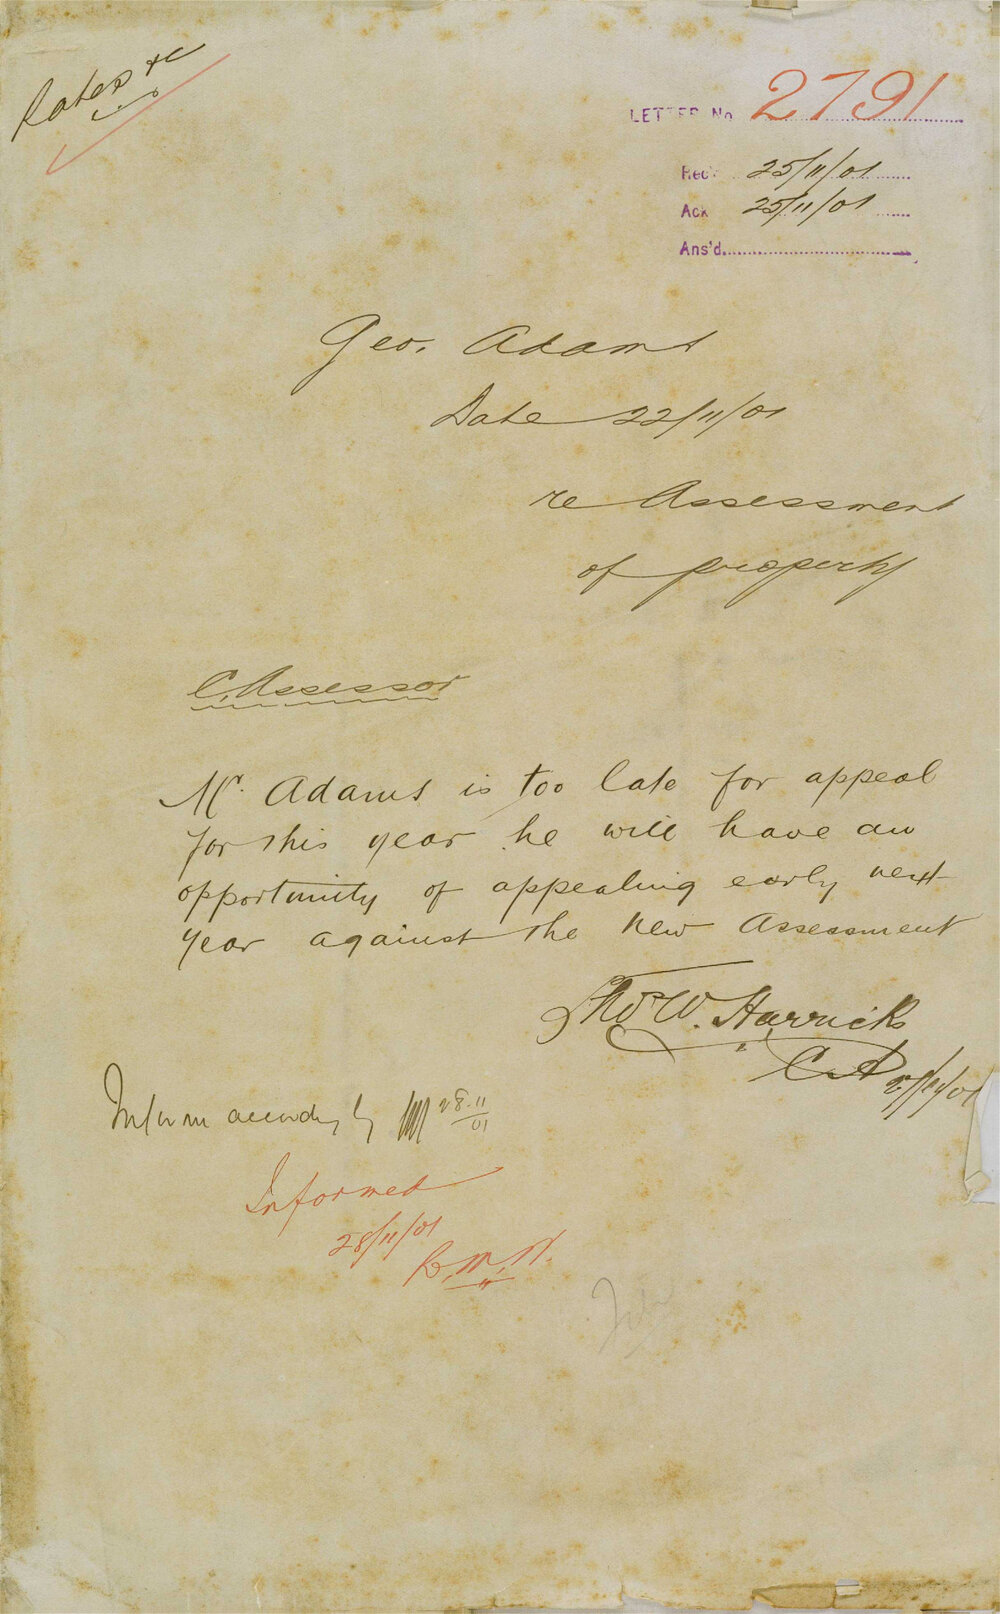 Rates &c
LETTER No 2791
Rec'd 25/11/01
Ack 25/11/01
Ans'd
Geo. Adams
Date 22/11/01
re Assessment
of property
C. Assessor
Mr. Adams is too late for appeal
for this year he will have an
opportunity of appealing early next
year against the New Assessment
Thos W. Harrick
C A /11/01
Inform accordingly 28.11/01
Informed
28/11/01